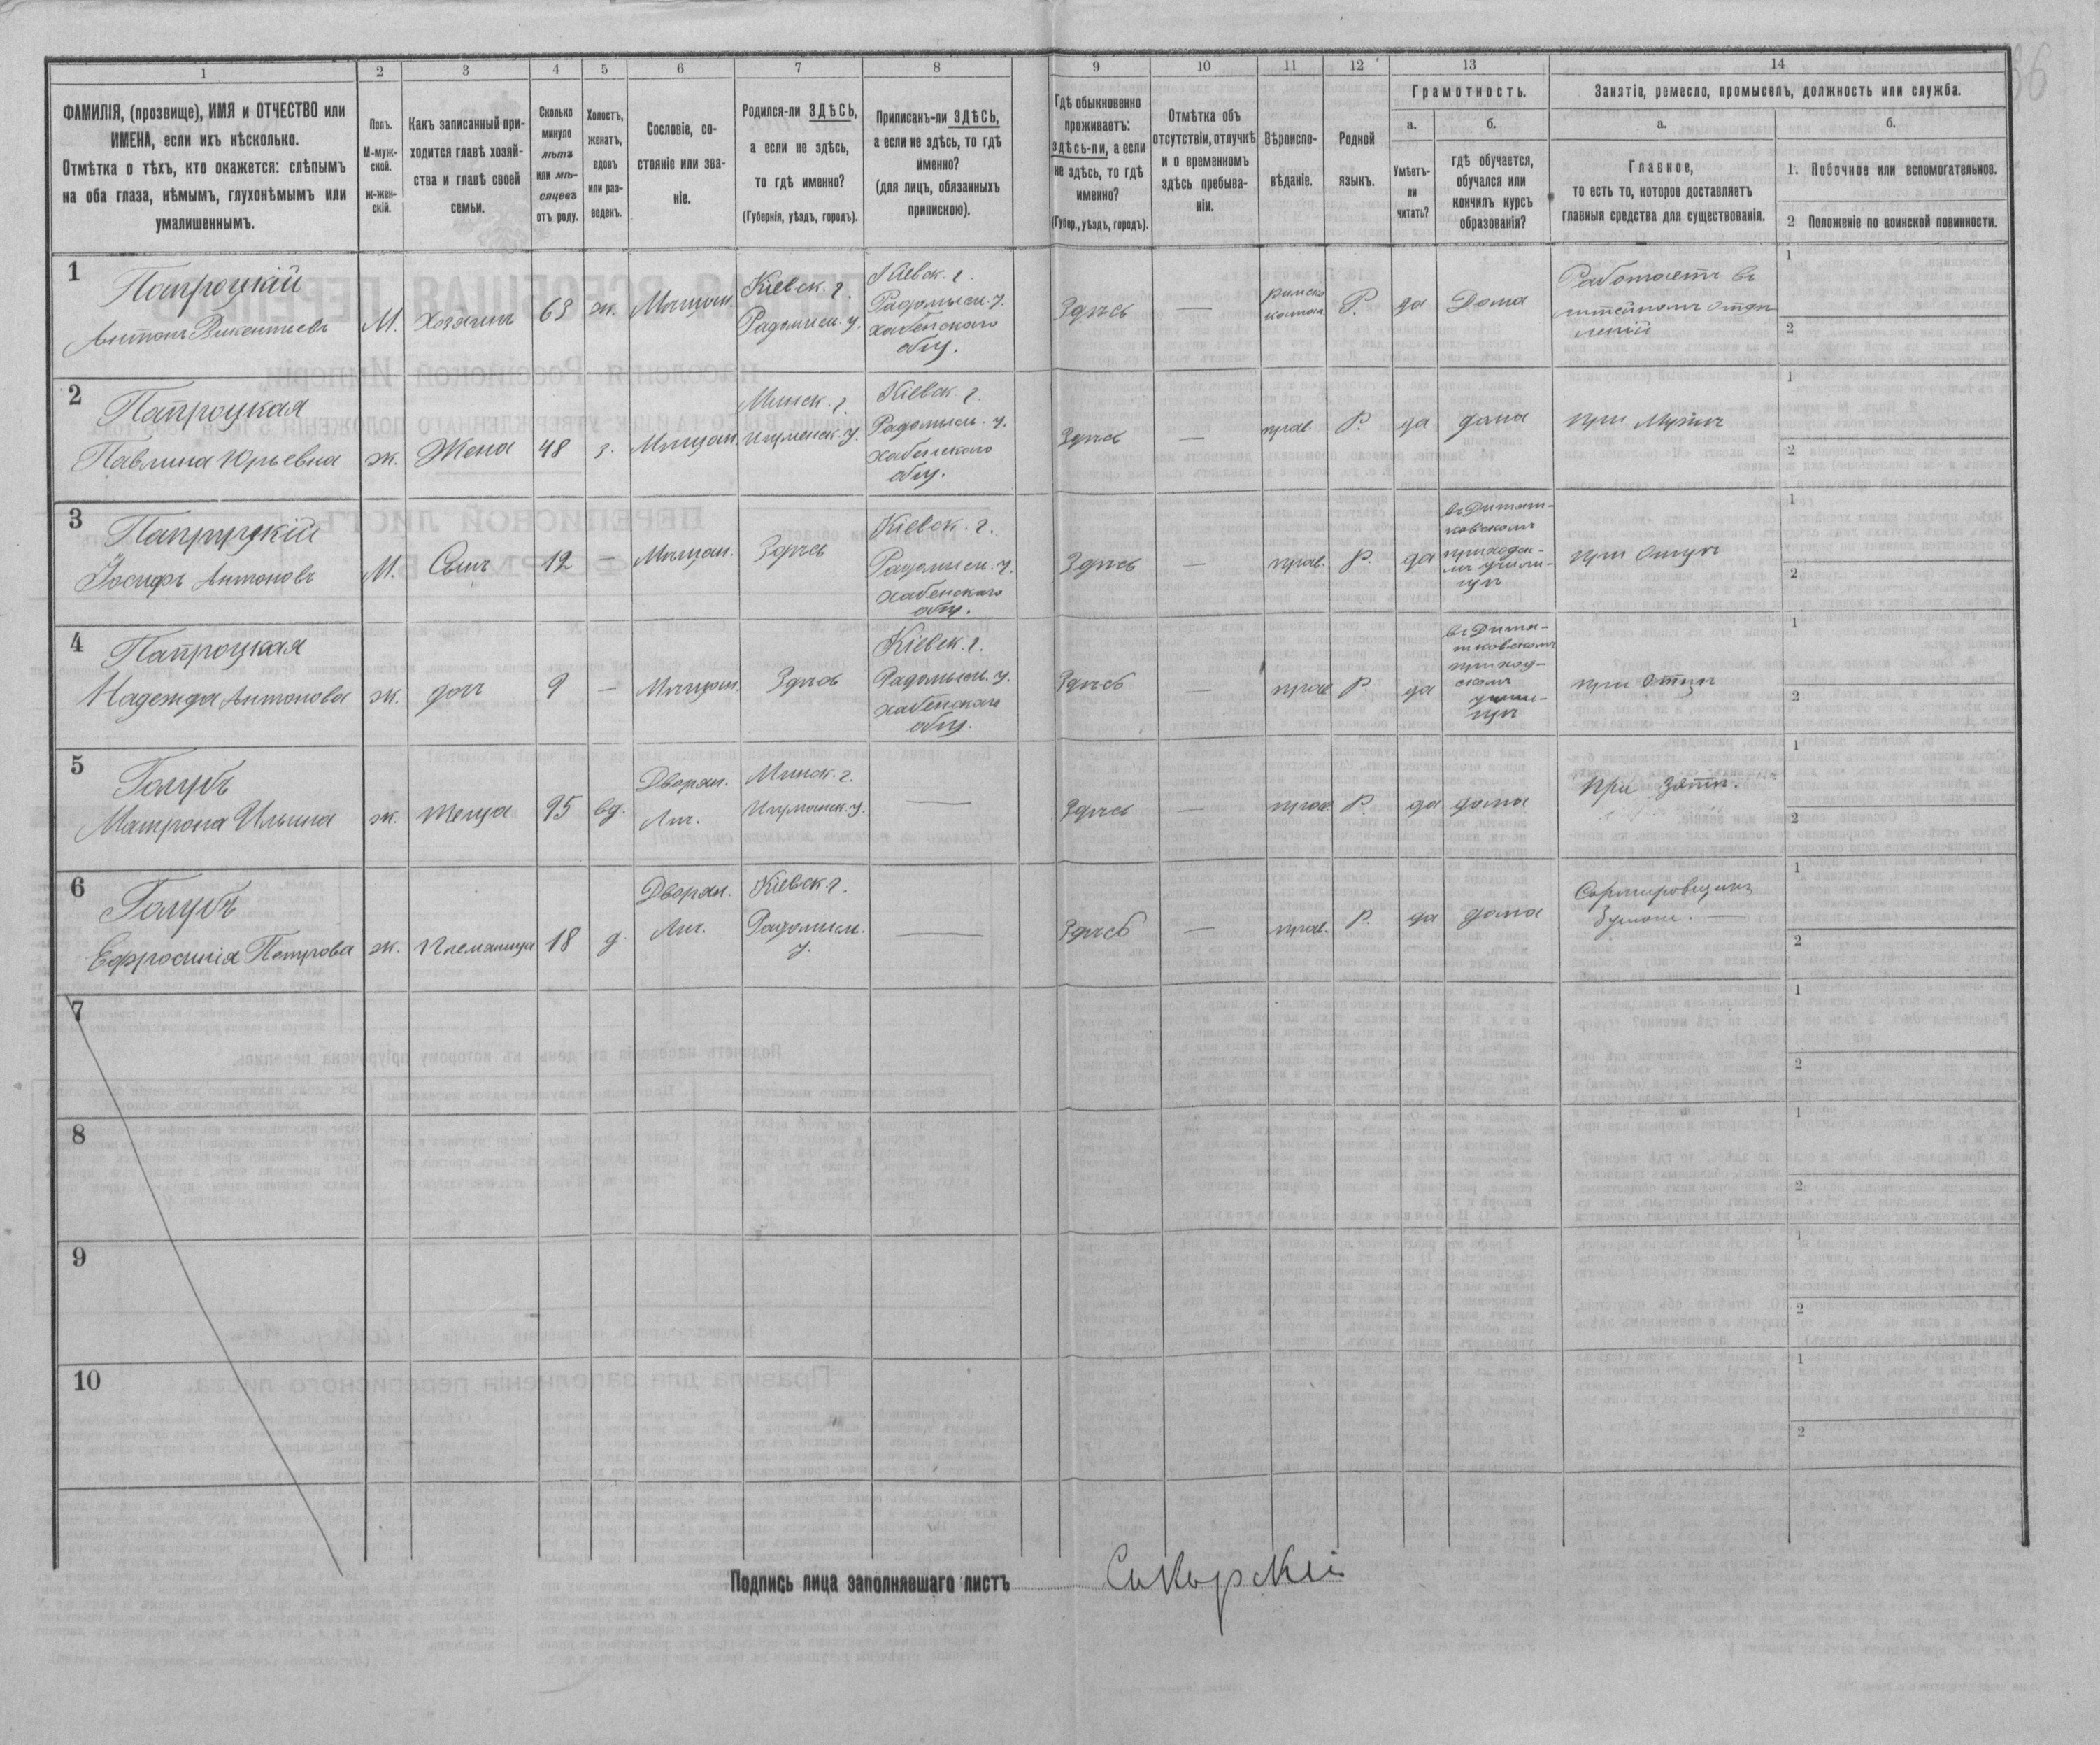 1 2 3 4 5 6 7 8 9 10 11 12 13 14
ФАМИЛІЯ, (прозвище), ИМЯ и ОТЧЕСТВО или
ИМЕНА, если ихъ нѣсколько.
Отмѣтка о тѣхъ, кто окажется: слѣпымъ
на оба глаза, нѣмымъ, глухонѣмымъ или
умалишеннымъ.
Полъ.
М-муж-
ской.
ж-жен-
скій.
Какъ записанный при-
ходится главѣ хозяй-
ства и главѣ своей
семьи.
Сколько
минуло
лѣтъ
или мѣ-
сяцевъ
отъ роду.
Холостъ,
женатъ,
вдовъ
или раз-
веденъ.
Сословіе, со-
стояніе или зва-
ніе.
Родился-ли ЗДѢСЬ,
а если не здѣсь,
то гдѣ именно?
(Губернія, уѣздъ, городъ).
Приписанъ-ли ЗДѢСЬ,
а если не здѣсь, то гдѣ
именно?
(для лицъ, обязанныхъ
припискою).
Гдѣ обыкновенно
проживаетъ:
здѣсь-ли, а если
не здѣсь, то гдѣ
именно?
(Губер., уѣздъ, городъ).
Отмѣтка объ
отсутствіи, отлучкѣ
и о временномъ
здѣсь пребыва-
ніи.
Вѣроиспо-
вѣданіе.
Родной
языкъ.
Грамотность.
а.
Умѣетъ-
ли
читать?
б.
гдѣ обучается,
обучался или
кончилъ курсъ
образованія?
Занятіе, ремесло, промыселъ, должность или служба.
а.
Главное,
то есть то, которое доставляетъ
главныя средства для существованія.
б.
1. Побочное или вспомогательное.
2 Положеніе по воинской повинности.
1
Папроцкій
Антонъ Викентьевъ
М.
Хозяинъ
63
ж.
Мѣщан.
Кіевск. г.
Радомысл. у.
Кіевск. г.
Радомысл. у.
хабенскаго
общ.
Здѣсь
—
римско
катол.
Р.
да
Дома
Работаетъ въ
литейномъ отдѣ
леніи
1
2
2
Папроцкая
Павлина Юрьевна
ж.
Жена
48
з.
Мѣщан.
Минск. г.
Игуменск. у.
Кіевск. г.
Радомысл. у.
хабенскаго
общ.
Здѣсь
—
прав.
Р.
да
дома
при мужѣ
1
2
3
Папроцкій
Іосифъ Антоновъ
М.
Сынъ
12
—
Мѣщан.
Здѣсь
Кіевск. г.
Радомысл. у.
хабенскаго
общ.
Здѣсь
—
прав.
Р.
да
въ Дитят-
ковскомъ
приходск-
мъ учили-
щѣ
при Отцѣ
1
2
4
Папроцкая
Надежда Антонова
ж.
дочь
9
—
Мѣщан.
Здѣсь
Кіевск. г.
Радомысл. у.
хабенскаго
общ.
Здѣсь
—
прав
Р.
да
въ Дитя-
тковскомъ
приход-
скомъ
учили-
щѣ
при Отцѣ
1
2
5
Голубъ
Матрона Ильина
ж.
теща
95
вд.
Дворян.
Лич.
Минск. г.
Игуменск. у.
—
Здѣсь
—
прав
Р.
да
дома
при зятѣ.
1
2
6
Голубъ
Ефросинія Петрова
ж.
племяница
18
д.
Дворян.
Лич.
Кіевск. г.
Радомысл.
у.
—
Здѣсь
—
прав.
Р.
да
дома
Сортировщица
1
2
7
1
2
8
1
2
9
1
2
10
1
2
Подпись лица заполнявшаго листъ